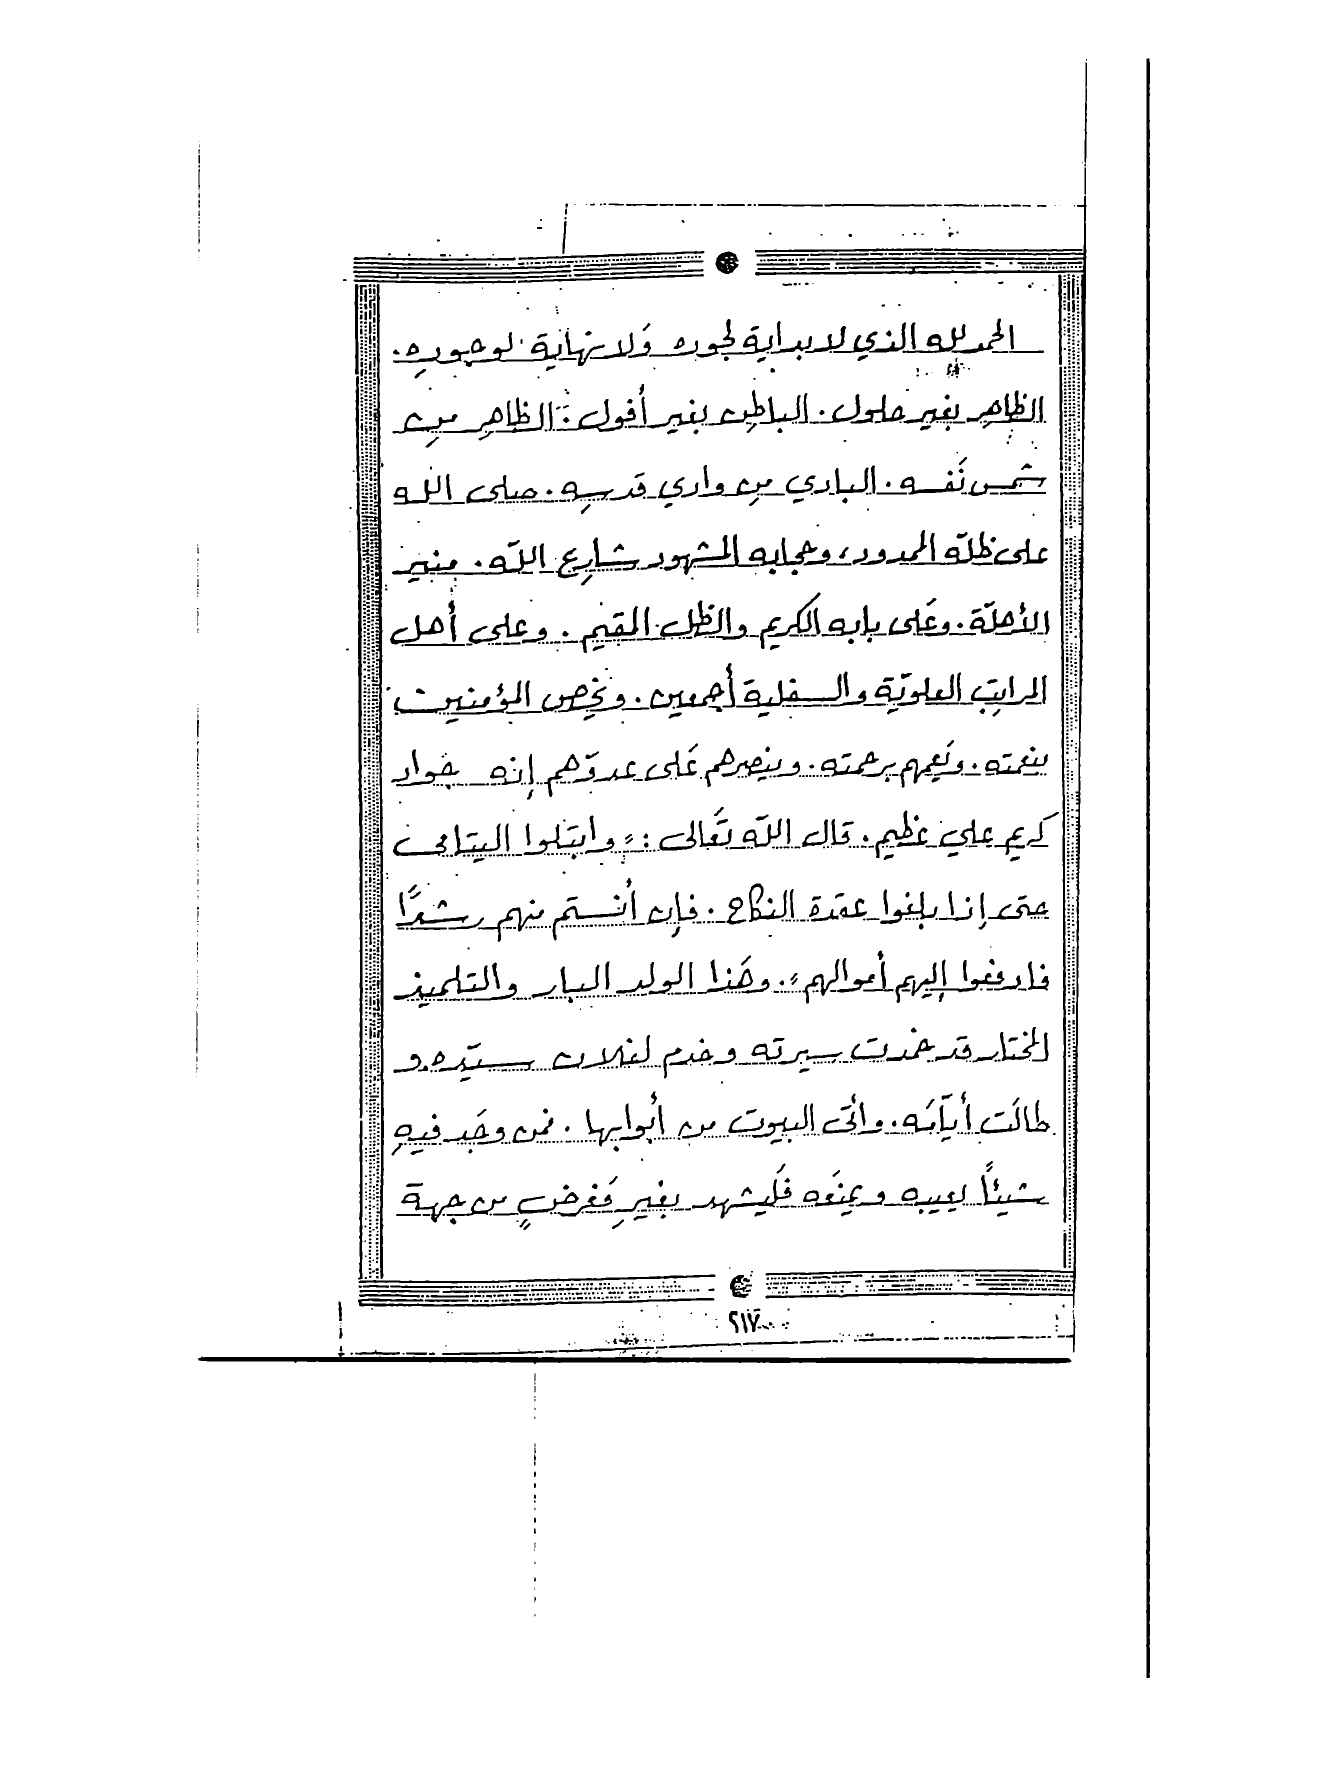 الحمد لله الذي لا بداية لجوده وَلا نهاية لوجوده.
الظاهِر بغير حلول. الباطِن بغير أفول: الظاهِر مِن
شمس نَفسه. البادي مِن وادي قدسِه. صلى الله
على ظلّه الممدود، وحجابه المشهود شارِع اللّه. منير
الأهلّة. وعَلى بابه الكريم والظل المقيم. وعلى أهل
المراتِب العلويّة والسفلية أجمعين. ونخِص المؤمنين
بنعمته. ونَعمهم برحمته. وينصرهم عَلى عدوّهم إنه جواد
كريم علي عظيم. قال اللّه تَعالى: "وابتلوا اليتامى
حتى إذا بلغوا عقدة النكاح. فإِن أنستم منهم رشداً
فادفعوا إليهم أموالهم". وهَذا الولد البار والتلميذ
المختار قد حمدت سيرته وخدم لفلان سيّده و
طالَت أيّامَه. وأتى البيوت من أبوابها. فمن وجَد فيهِ
شيئاً يعيبه ويمنَعه فَليشهد بغيرِ مَغرضٍ من جهة
٢١٧